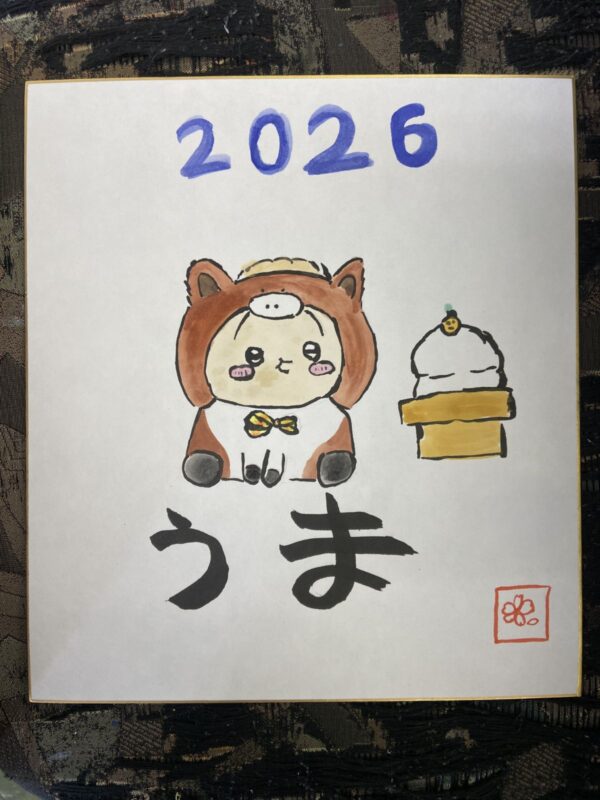 2026
うま